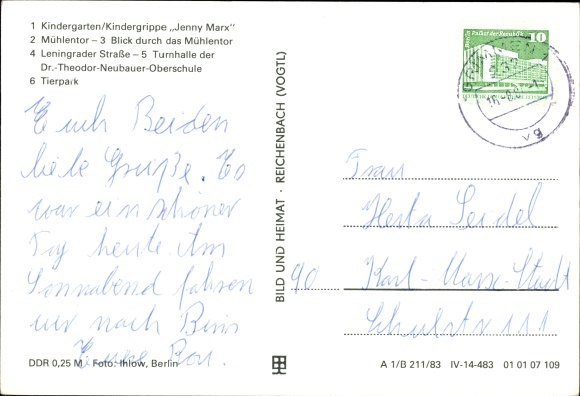 1 Kindergarten/Kindergrippe „Jenny Marx"
2 Mühlentor – 3 Blick durch das Mühlentor
4 Leningrader Straße – 5 Turnhalle der
Dr.-Theodor-Neubauer-Oberschule
6 Tierpark
Euch Beiden
liebe Grüße. Es
war ein schöner
Tag heute. Am
Sonnabend fahren
wir nach
Eure
DDR 0,25 M Foto: Ihlow, Berlin
BILD UND HEIMAT · REICHENBACH (VOGTL)
Berlin Palast der Republik 10
Frau
Herta Seidel
90 Karl-Marx-Stadt
Schulstr 111
A 1/B 211/83 IV-14-483 01 01 07 109